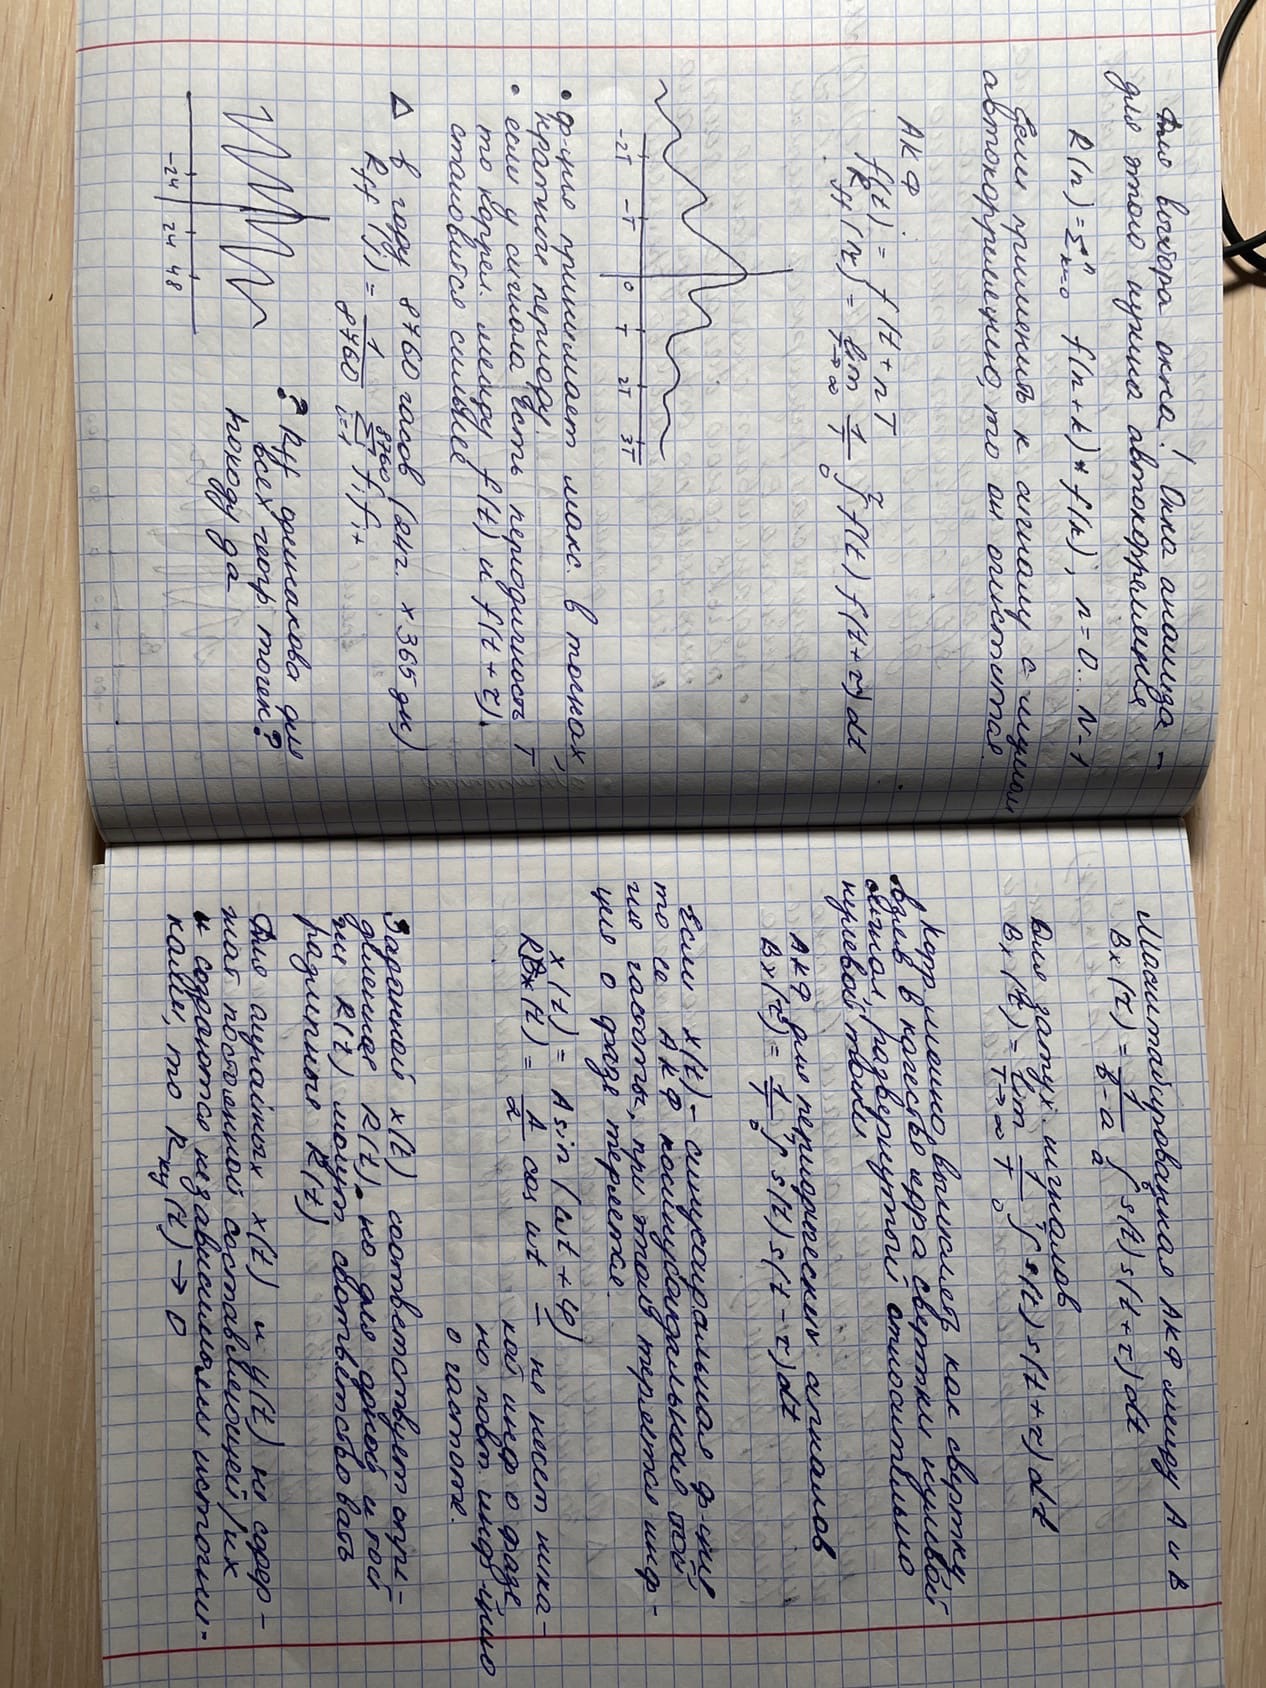 Для выбора окна! Окна анализа –
для этого нужна автокорреляция
R(n) = Σⁿₖ₌₀ f(n+k) * f(k), n=0...N-1
Если применить к сигналу с шумом
автокорреляцию, то он очистится.
АКФ
f(t) = f(t+nT
Rff(τ) = lim T→∞ 1/T ∫₀^τ f(t) f(t+τ) dt
-2T -T 0 T 2T 3T
• ф-ция принимает макс. в точках,
кратные периоду.
• если у сигнала есть периодичность T
то коррел. между f(t) и f(t+τ).
становится сильнее
△ в году 8760 часов (24ч. × 365 дн)
Rff(j) = 1/8760 Σ⁸⁷⁶⁰ᵢ₌₁ fᵢ fᵢ₊
? Rff одинакова для
всех геогр. точек?
походу да
-24 24 48
Масштабированная АКФ между А и В
Bx(τ) = 1/(b-a) ∫ₐᵇ s(t) s(t+τ) dt
Для затух. сигналов
Bx(τ) = lim T→∞ 1/T ∫₀ᵀ s(t) s(t+τ) dt
Корр. можно вычислять как свертку,
взяв в качестве ядра свертки нулевой
сигнал, развернутый относительно
нулевой точки
АКФ для периодических сигналов
Bx(τ) = 1/T ∫₀ᵀ s(t) s(t-τ) dt
Если x(t) – синусоидальная ф-ция,
то ее АКФ косинусоидальная той
же частоты, при этом теряется инф-
ция о фазе теряется.
x(t) = A sin(ωt + φ)
RBx(t) = A/2 cos ωt – не несет ника-
кой инф о фазе,
но повт. инф-цию
о частоте.
Заданной x(t) соответствует опре-
деленная R(t). но для одной и той
же R(t) могут соответствовать
различные R(t)
Для случайных x(t) и y(t) не содер-
жат постоянной составляющей/их
и создаются независимыми источни-
ками, то Rxy(t) → 0